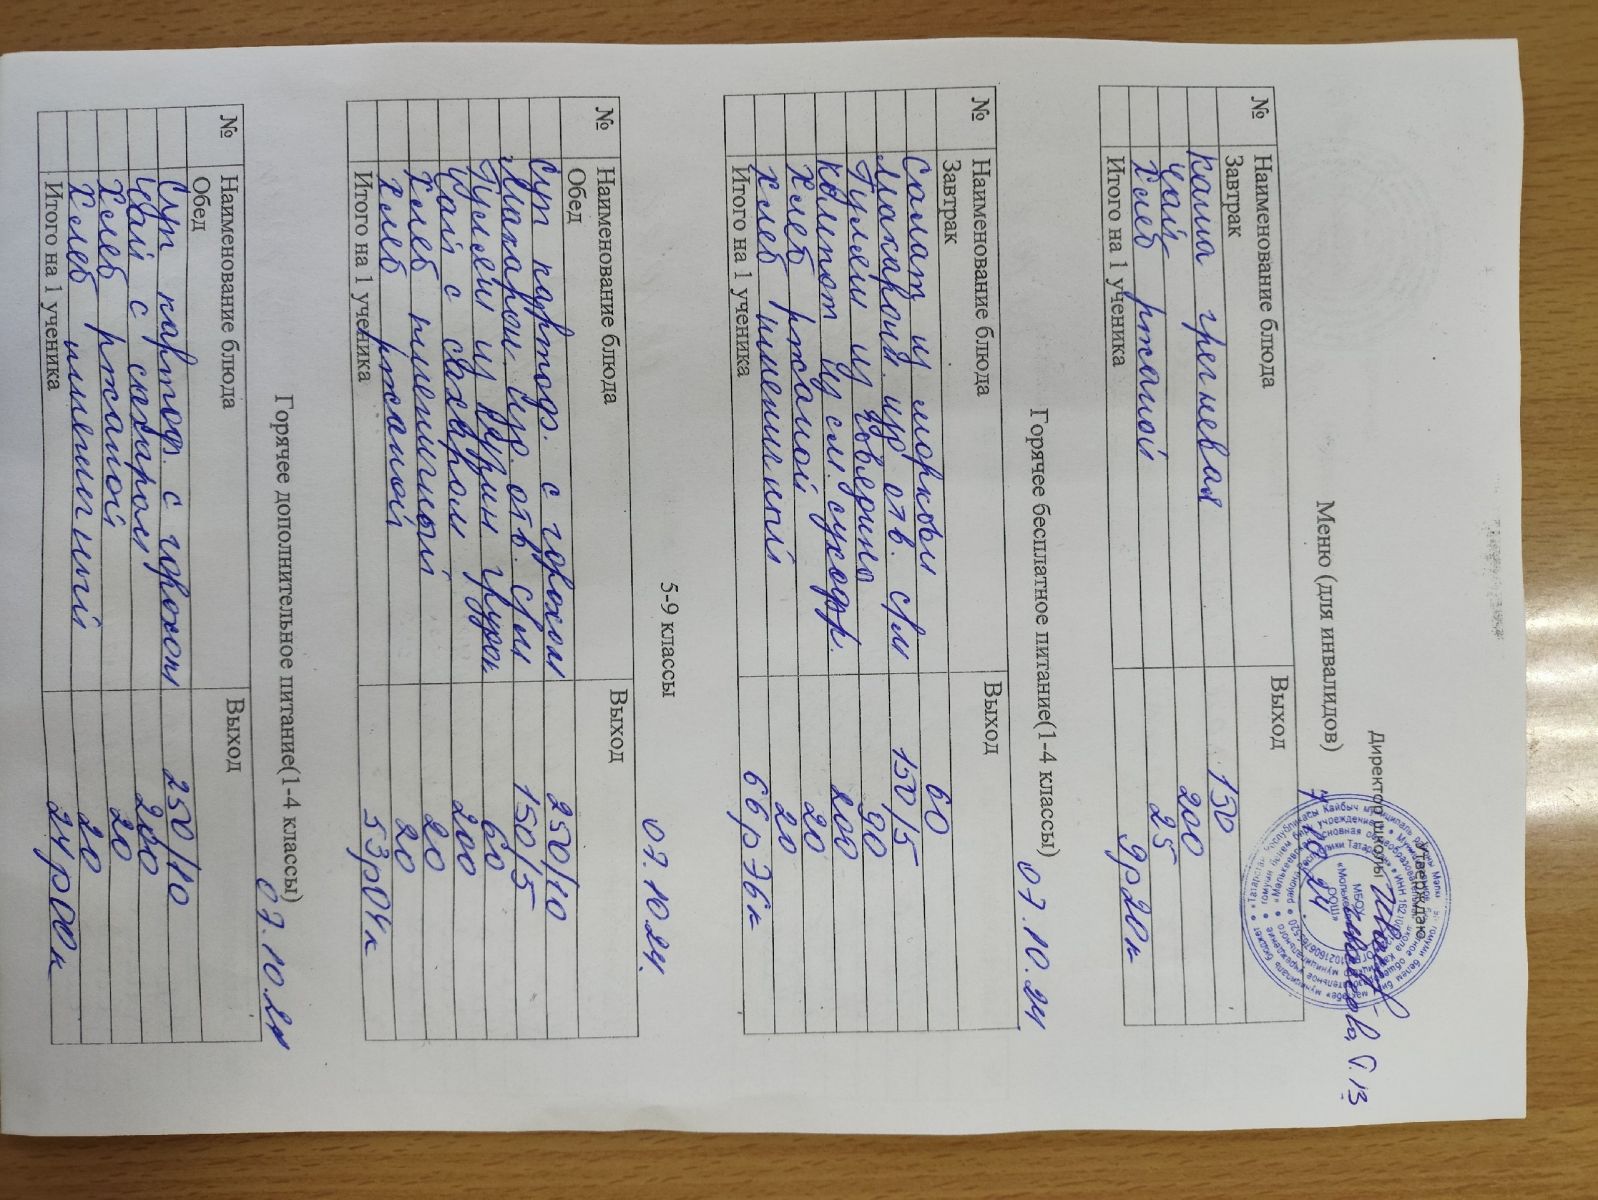 Утверждаю
Директор школы
Меню (для инвалидов) 7.10.24
№ Наименование блюда Выход
Завтрак
Каша гречневая 150
Чай 200
Хлеб ржаной 25
Итого на 1 ученика 9р20к
Горячее бесплатное питание(1-4 классы) 07.10.24
№ Наименование блюда Выход
Завтрак
Салат из моркови 60
Макарон. изд. отв. с/м 150/5
Гуляш из говядины 90
Компот из см. сухофр. 200
Хлеб ржаной 20
Хлеб пшеничный 20
Итого на 1 ученика 66р76к
5-9 классы 07.10.24.
№ Наименование блюда Выход
Обед
Суп картоф. с горохом 250/10
Макарон. изд. отв. с/м 150/5
Гуляш из курин. грудок 60
Чай с сахаром 200
Хлеб пшеничный 20
Хлеб ржаной 20
Итого на 1 ученика 53р04к
Горячее дополнительное питание(1-4 классы) 07.10.24
№ Наименование блюда Выход
Обед
Суп картоф. с горохом 250/10
Чай с сахаром 200
Хлеб ржаной 20
Хлеб пшеничный 20
Итого на 1 ученика 24р00к